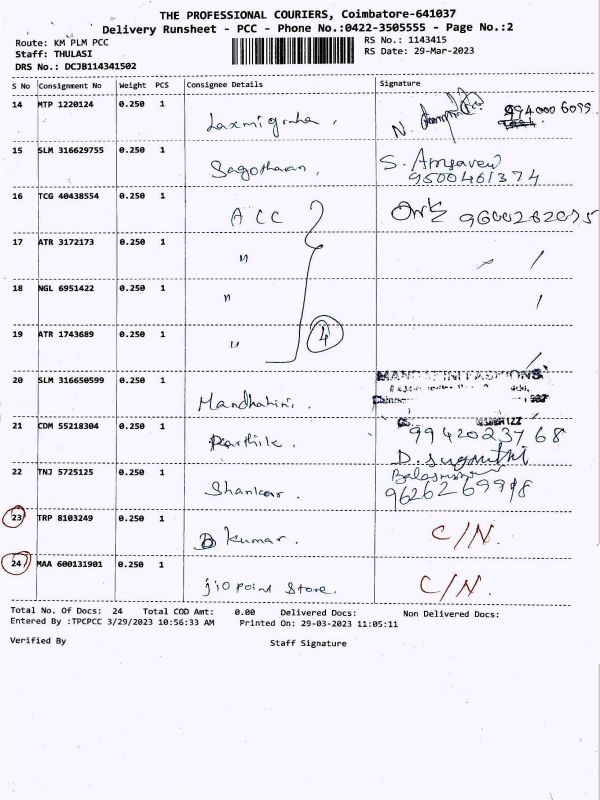 THE PROFESSIONAL COURIERS, Coimbatore-641037
Delivery Runsheet - PCC - Phone No.:0422-3505555 - Page No.:2
Route: KM PLM PCC
Staff: THULASI
DRS No.: DCJB114341502
RS No.: 1143415
RS Date: 29-Mar-2023
S No Consignment No Weight PCS Consignee Details Signature
14 MTP 1220124 0.250 1 Laxmigraha. N.
15 SLM 316629755 0.250 1 S. 9500461374
16 TCG 40438554 0.250 1 ACC
17 ATR 3172173 0.250 1 "
18 NGL 6951422 0.250 1 "
19 ATR 1743689 0.250 1 " 4
20 SLM 316650599 0.250 1
21 CDM 55218304 0.250 1 Karthik. 9942023768
D. Suganthi
22 TNJ 5725125 0.250 1 Shankar.
23 TRP 8103249 0.250 1 B Kumar. C/N.
24 MAA 600131901 0.250 1 jio point store. C/N.
Total No. Of Docs: 24 Total COD Amt: 0.00 Delivered Docs: Non Delivered Docs:
Entered By :TPCPCC 3/29/2023 10:56:33 AM Printed On: 29-03-2023 11:05:11
Verified By Staff Signature